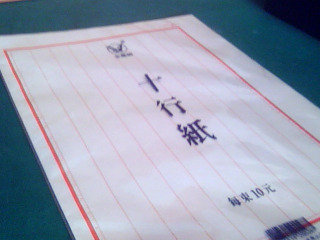 十行紙
每束10元